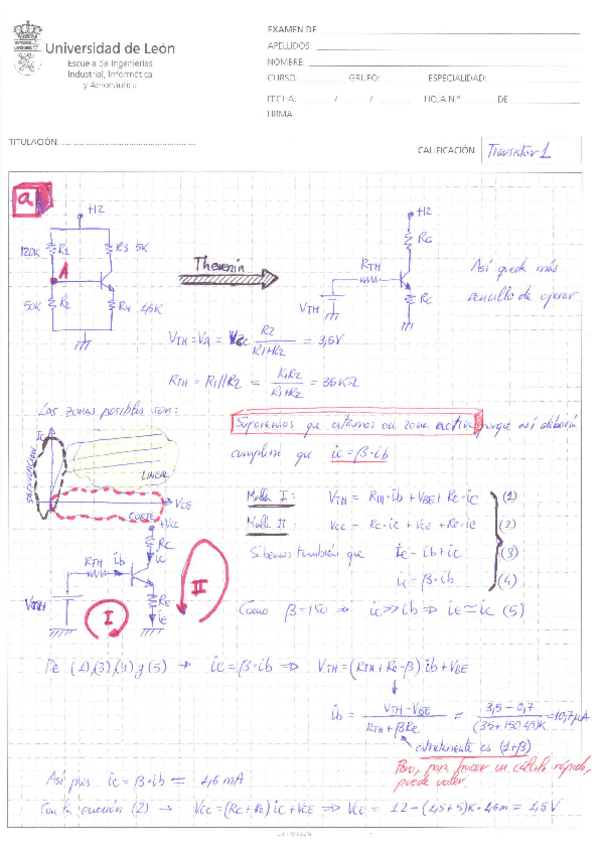 Universidad de León
Escuela de Ingenierías
Industrial, Informática
y Aeronáutica
EXAMEN DE
APELLIDOS:
NOMBRE:
CURSO: GRUPO: ESPECIALIDAD:
FECHA: / / HOJA N.º DE
FIRMA
TITULACIÓN:
CALIFICACIÓN Transistor 1
a
+12
120K R1 R3 5K
A
50K R2 R4 4,5K
Thevenin
+12
RC
RTH
VTH
Así queda más
sencillo de operar
VTH = VA = VCC R2 / (R1+R2) = 3,5V
RTH = R1//R2 = R1R2 / (R1+R2) = 36KΩ
Las zonas posibles son:
Supondremos que estamos en zona activa porque así debería
cumplirse que ic = β·ib
Ic
SATURACIÓN
LINEAL
CORTE
VCE
+Vcc
RC
ic
RTH ib
VTH
RE
ie
I
II
Malla I: VTH = RTH·ib + VBE + Re·ic (1)
Malla II: Vcc = Rc·ic + Vce + Re·ie (2)
Sabemos también que ie = ib + ic (3)
ic = β·ib (4)
Como β=150 ⇒ ic >> ib ⇒ iE ≃ ic (5)
De (1),(3),(4) y (5) → ic = β·ib ⇒ VTH = (RTH + Re·β) ib + VBE
ib = (VTH - VBE) / (RTH + βRe) = (3,5 - 0,7) / (35+150·4,5)K = 10,7μA
(1+β)
Pero, para hacer un cálculo rápido,
puede valer
Así pues ic = β·ib = 1,6 mA
Con la ecuación (2) → Vcc = (Rc+Re) ic + VCE ⇒ VCE = 12 - (4,5+5)K·1,6m = 4,5V